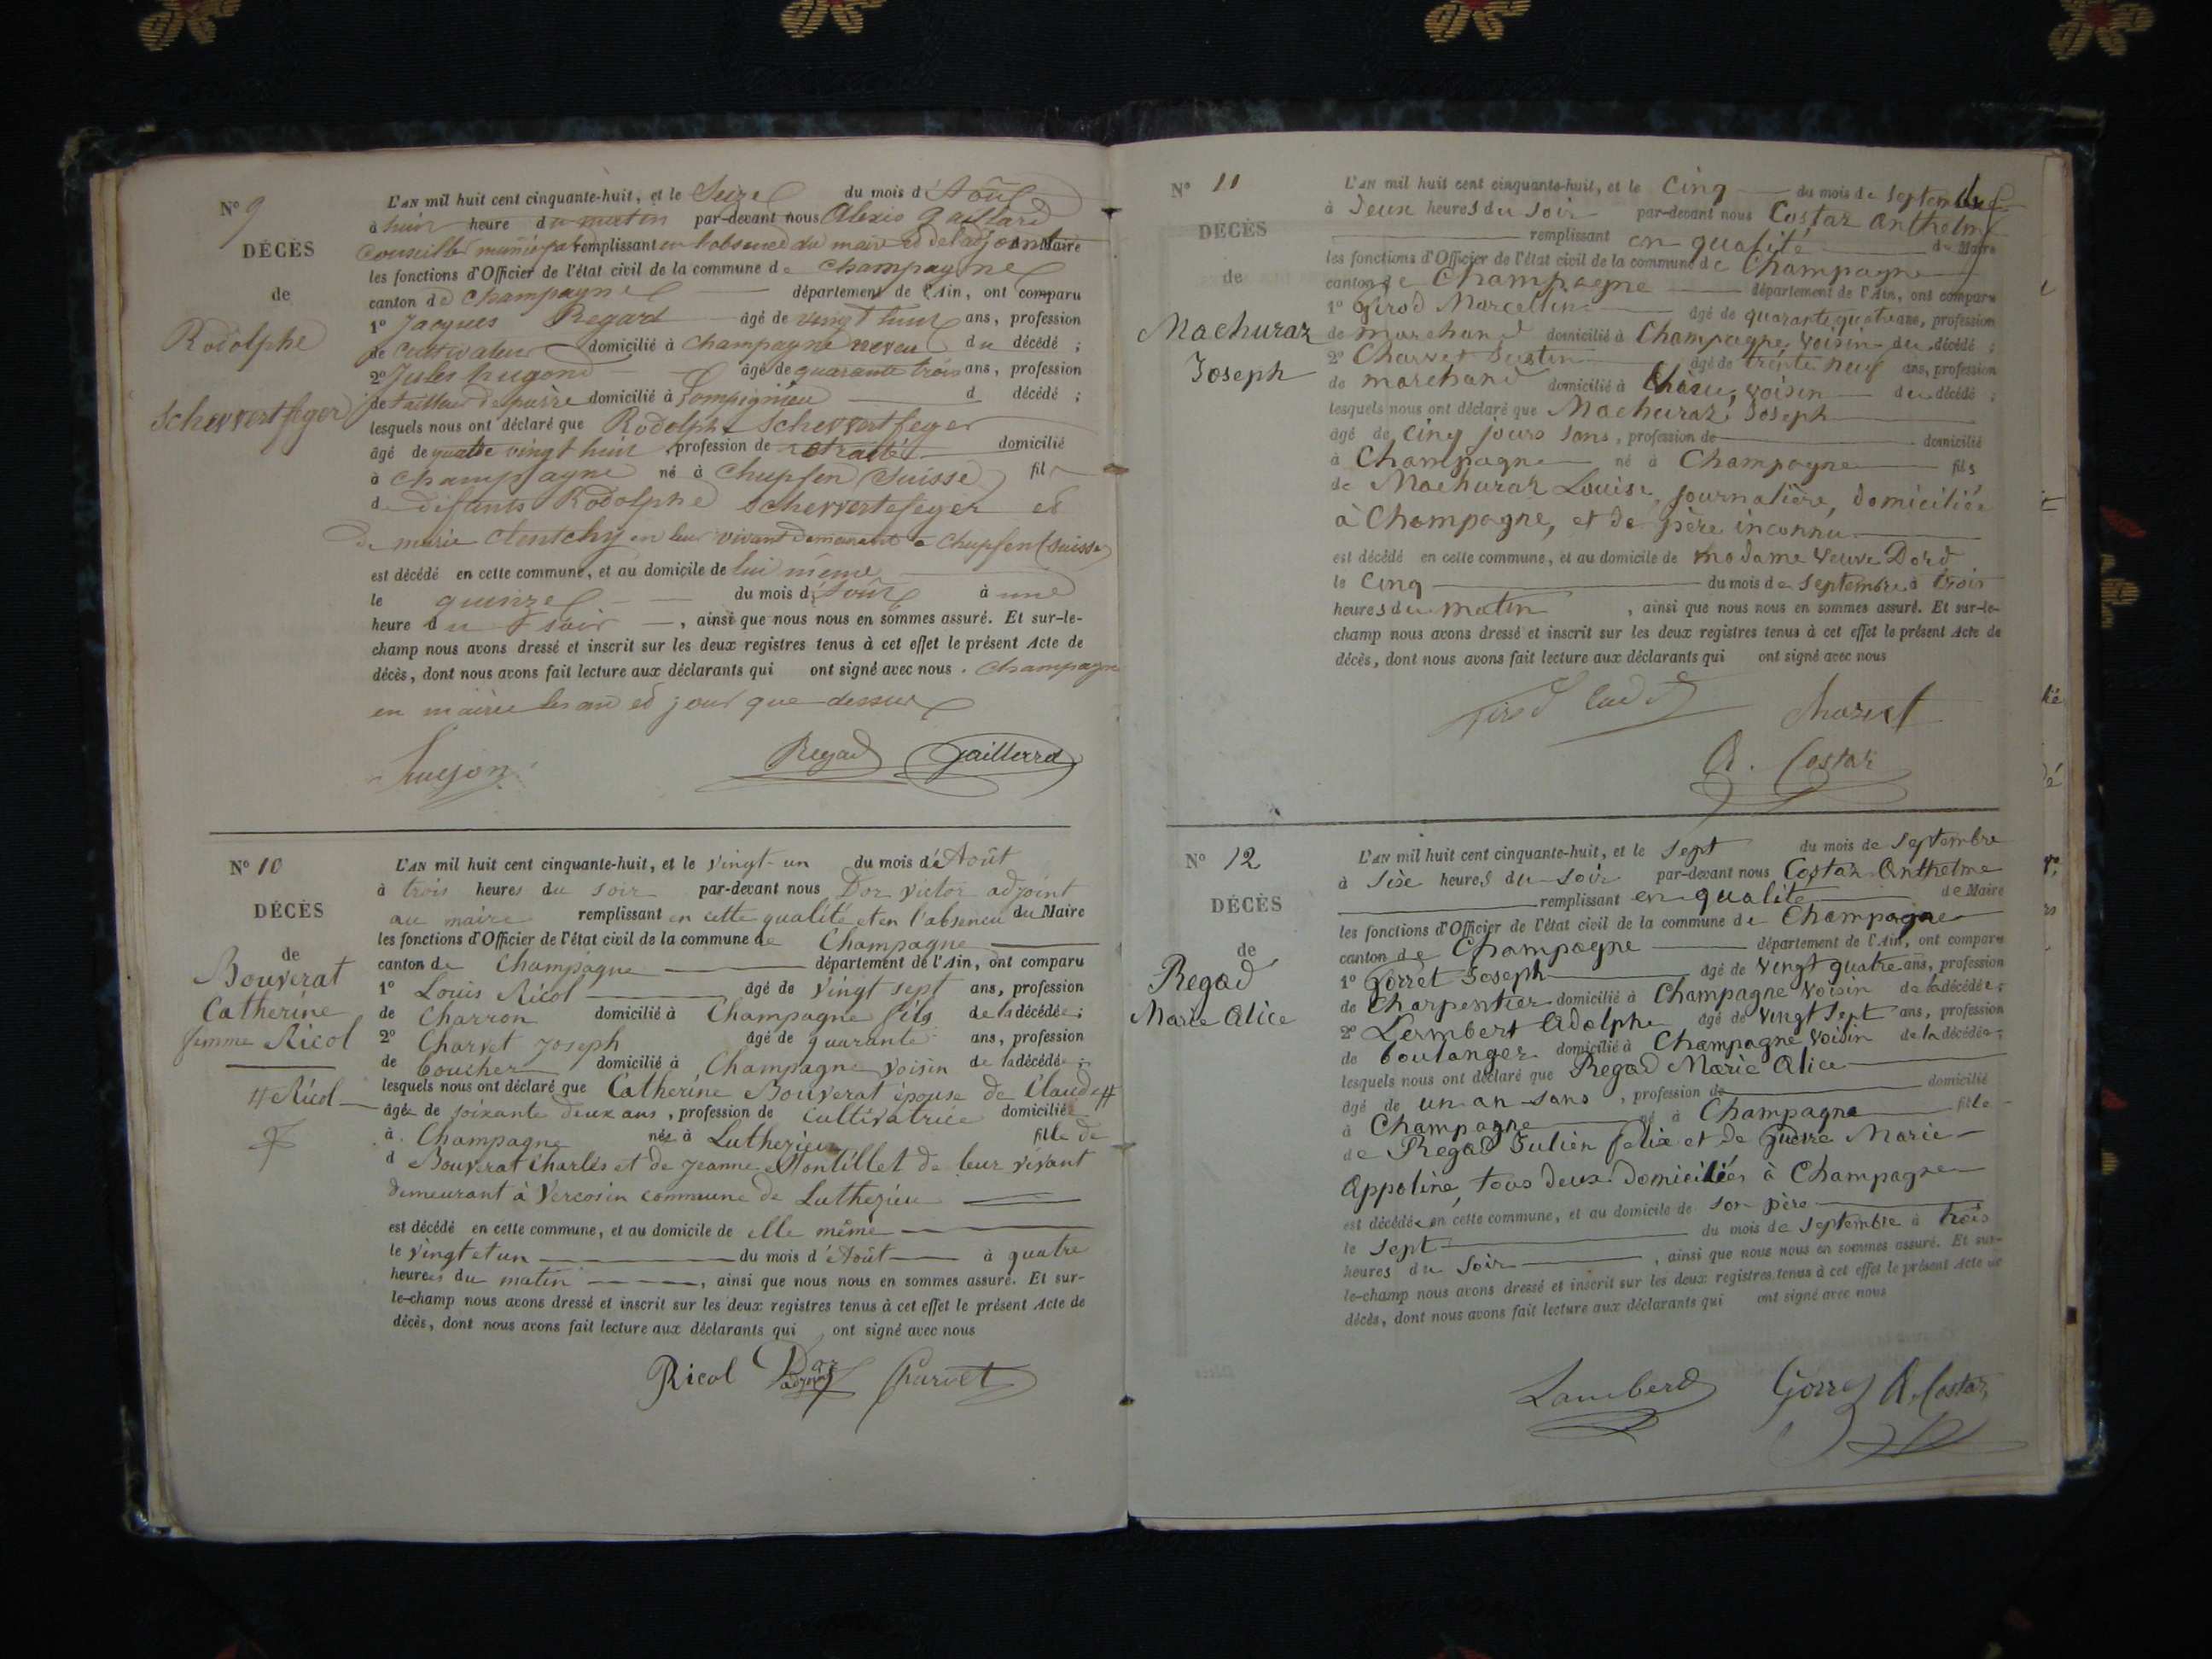 N° 9
DÉCÈS
de
Rodolphe
Schervertfeger
L'AN mil huit cent cinquante-huit, et le Seize du mois d'Août
à huit heure du matin par-devant nous Alexis Gaillard
Conseiller municipal remplissant en l'absence du maire et de l'adjoint Maire
les fonctions d'Officier de l'état civil de la commune de Champagne
canton de Champagne département de l'Ain, ont comparu
1° Jacques Regard âgé de vingt huit ans, profession
de Cultivateur domicilié à Champagne neveu du décédé ;
2° Jules hugond âgé de quarante trois ans, profession
de tailleur de pierre domicilié à d décédé ;
lesquels nous ont déclaré que Rodolphe Schervertfeger
âgé de quatre vingt huit profession de retraité domicilié
à Champagne né à Chupfen (Suisse) fil
de défunts Rodolphe Schervertefeger et
De marie en leur vivant demeurant à Chupfen (Suisse)
est décédé en cette commune, et au domicile de lui même
le quinze du mois d'Août à une
heure du soir , ainsi que nous nous en sommes assuré. Et sur-le-
champ nous avons dressé et inscrit sur les deux registres tenus à cet effet le présent Acte de
décès, dont nous avons fait lecture aux déclarants qui ont signé avec nous . Champagne
en mairie les an et jour que dessus
Regard Gaillard
N° 10
DÉCÈS
de
Bouverat
Catherine
femme Ricol
# Ricol
L'AN mil huit cent cinquante-huit, et le Vingt-un du mois d'Août
à trois heures du soir par-devant nous Dor Victor adjoint
au maire remplissant en cette qualité et en l'absence du Maire
les fonctions d'Officier de l'état civil de la commune de Champagne
canton de Champagne département de l'Ain, ont comparu
1° Louis Ricol âgé de Vingt sept ans, profession
de Charron domicilié à Champagne fils de la décédée ;
2° Charvet Joseph âgé de quarante ans, profession
de boucher domicilié à Champagne voisin de la décédée ;
lesquels nous ont déclaré que Catherine Bouverat épouse de Claude #
âgée de soixante deux ans, profession de cultivatrice domiciliée
à Champagne née à Luthezieu fille de
d Bouverat Charles et de Jeanne Montillet de leur vivant
demeurant à Vercosin commune de Luthezieu
est décédé en cette commune, et au domicile de elle même
le Vingt et un du mois d'Août à quatre
heures du matin , ainsi que nous nous en sommes assuré. Et sur-
le-champ nous avons dressé et inscrit sur les deux registres tenus à cet effet le présent Acte de
décès, dont nous avons fait lecture aux déclarants qui ont signé avec nous
Ricol Dor adjoint Charvet
N° 11
DÉCÈS
de
Machuraz
Joseph
L'AN mil huit cent cinquante-huit, et le Cinq du mois de Septembre
à Deux heures du Soir par-devant nous Costaz Anthelme
remplissant en qualité de Maire
les fonctions d'Officier de l'état civil de la commune de Champagne
canton de Champagne département de l'Ain, ont comparu
1° Girod Marcellin âgé de quarante quatre ans, profession
de marchand domicilié à Champagne, Voisin du décédé ;
2° Charvet Justin âgé de trente neuf ans, profession
de marchand domicilié à voisin du décédé ;
lesquels nous ont déclaré que Machuraz Joseph
âgé de cinq jours sans, profession de domicilié
à Champagne né à Champagne fils
de Machuraz Louise, journalière, domiciliée
à Champagne, et de père inconnu
est décédé en cette commune, et au domicile de madame Veuve Dord
le Cinq du mois de Septembre à trois
heures du matin , ainsi que nous nous en sommes assuré. Et sur-le-
champ nous avons dressé et inscrit sur les deux registres tenus à cet effet le présent Acte de
décès, dont nous avons fait lecture aux déclarants qui ont signé avec nous
Girod Charvet
A. Costaz
N° 12
DÉCÈS
de
Regad
Marie Alice
L'AN mil huit cent cinquante-huit, et le Sept du mois de Septembre
à Sixe heures du Soir par-devant nous Costaz Anthelme
remplissant en qualité de Maire
les fonctions d'Officier de l'état civil de la commune de Champagne
canton de Champagne département de l'Ain, ont comparu
1° Gorret Joseph âgé de Vingt quatre ans, profession
de Charpentier domicilié à Champagne Voisin de la décédée ;
2° Lambert Adolphe âgé de Vingt Sept ans, profession
de boulanger domicilié à Champagne, Voisin de la décédée ;
lesquels nous ont déclaré que Regad Marie Alice
âgé de un an sans , profession de domicilié
à Champagne né à Champagne fille
de Regad Julien felix et de Marie
Appoline, tous deux Domiciliés à Champagne
est décédée en cette commune, et au domicile de son père
le Sept du mois de Septembre à trois
heures du Soir , ainsi que nous nous en sommes assuré. Et sur-
le-champ nous avons dressé et inscrit sur les deux registres tenus à cet effet le présent Acte de
décès, dont nous avons fait lecture aux déclarants qui ont signé avec nous
Lamberd Gorret A. Costaz